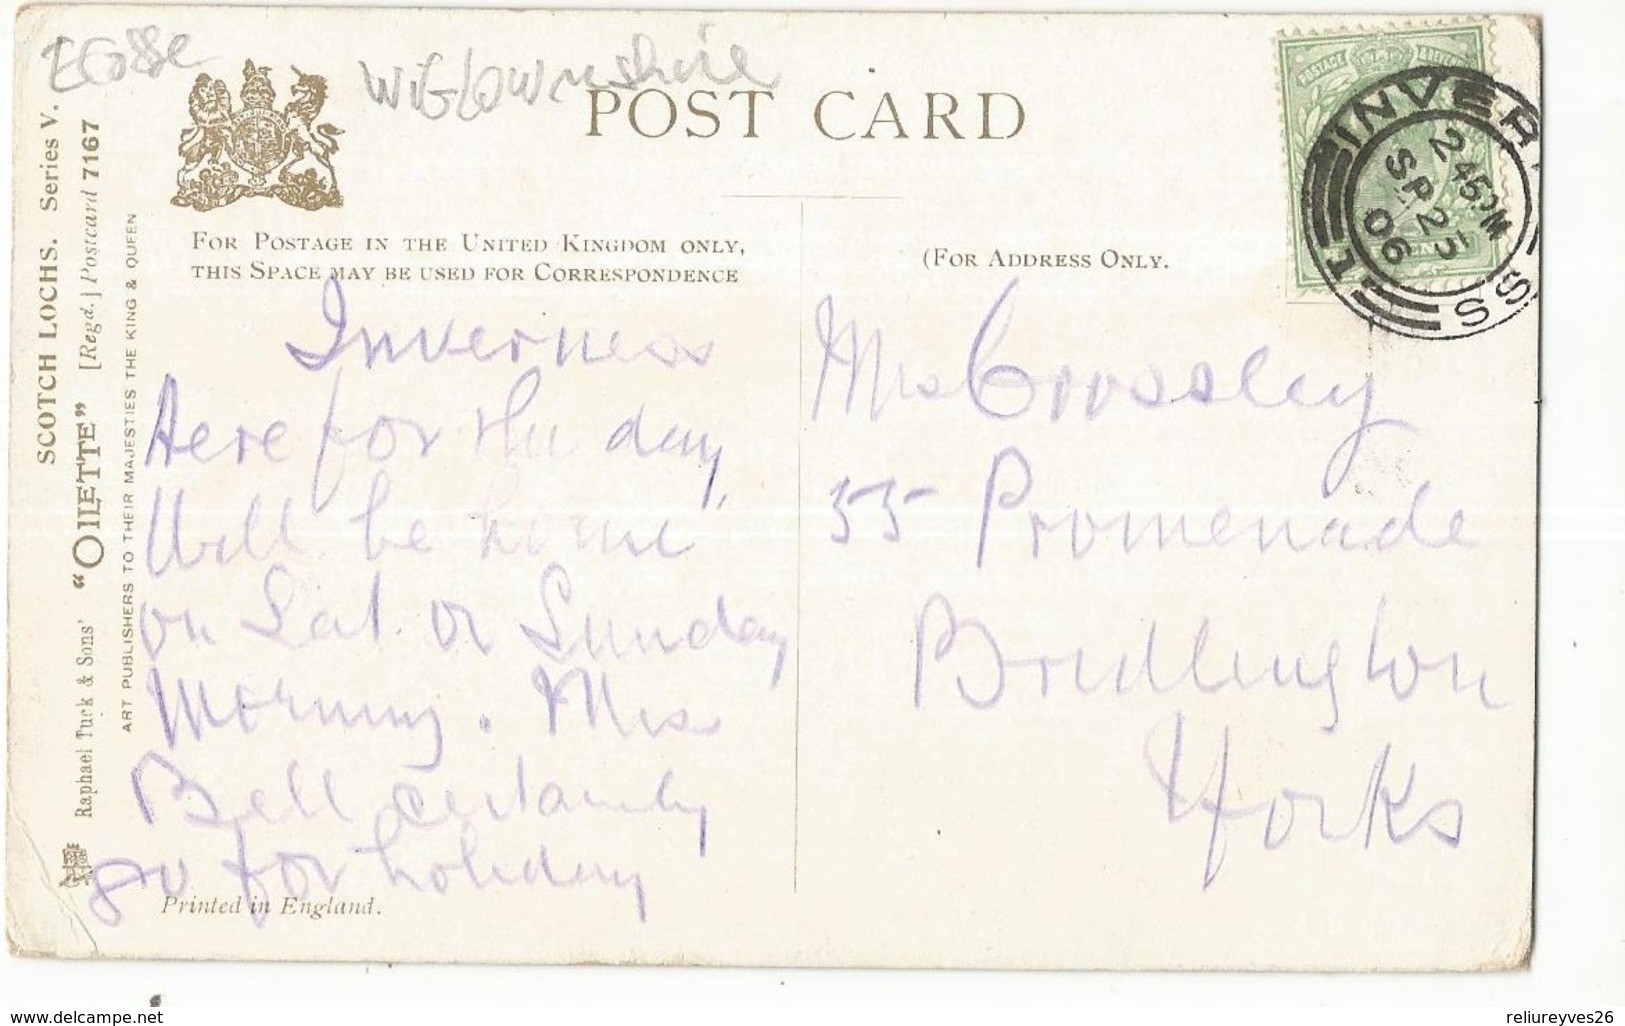 Ecosse
WIGtownshire
POST CARD
FOR POSTAGE IN THE UNITED KINGDOM ONLY,
THIS SPACE MAY BE USED FOR CORRESPONDENCE
(FOR ADDRESS ONLY.
POSTAGE
INVERNESS
2 45 PM
SP 25
06
SCOTCH LOCHS. Series V.
Raphael Tuck & Sons' “OILETTE” [Regd.] Postcard 7167
ART PUBLISHERS TO THEIR MAJESTIES THE KING & QUEEN
Inverness
Here for the day,
Will be home
on Sat. or Sunday
Morning. Mrs
Bell certainly
go for holiday
Mrs Crossley
55 Promenade
Bridlington
Yorks
Printed in England.
www.delcampe.net
reliureyves26